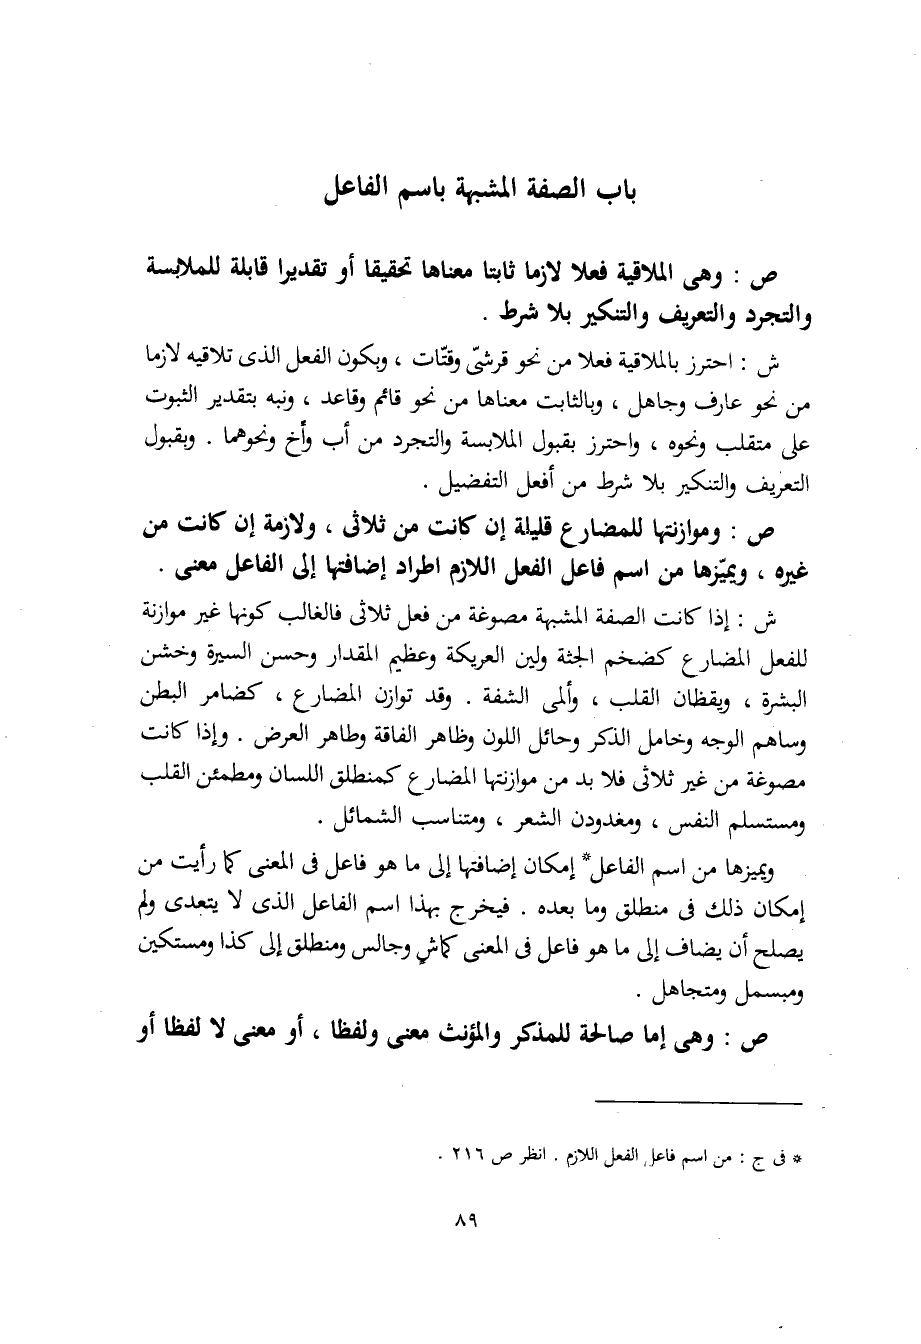 باب الصفة المشبهة باسم الفاعل
ص : وهى الملاقية فعلا لازما ثابتا معناها تحقيقا أو تقديرا قابلة للملابسة
والتجرد والتعريف والتنكير بلا شرط .
ش : احترز بالملاقية فعلا من نحو قرشىّ وقتّات ، وبكون الفعل الذى تلاقيه لازما
من نحو عارف وجاهل ، وبالثابت معناها من نحو قائم وقاعد ، ونبه بتقدير الثبوت
على متقلب ونحوه ، واحترز بقبول الملابسة والتجرد من أب وأخ ونحوهما . وبقبول
التعريف والتنكير بلا شرط من أفعل التفضيل .
ص : وموازنتها للمضارع قليلة إن كانت من ثلاثى ، ولازمة إن كانت من
غيره ، ويميّزها من اسم فاعل الفعل اللازم اطراد إضافتها إلى الفاعل معنى .
ش : إذا كانت الصفة المشبهة مصوغة من فعل ثلاثى فالغالب كونها غير موازنة
للفعل المضارع كضخم الجثة ولين العريكة وعظيم المقدار وحسن السيرة وخشن
البشرة ، ويقظان القلب ، وألمى الشفة . وقد توازن المضارع ، كضامر البطن
وساهم الوجه وخامل الذكر وحائل اللون وظاهر الفاقة وطاهر العرض . وإذا كانت
مصوغة من غير ثلاثى فلا بد من موازنتها المضارع كمنطلق اللسان ومطمئن القلب
ومستسلم النفس ، ومغدودن الشعر ، ومتناسب الشمائل .
ويميزها من اسم الفاعل* إمكان إضافتها إلى ما هو فاعل فى المعنى كما رأيت من
إمكان ذلك فى منطلق وما بعده . فيخرج بهذا اسم الفاعل الذى لا يتعدى ولم
يصلح أن يضاف إلى ما هو فاعل فى المعنى كماشٍ وجالس ومنطلق إلى كذا ومستكين
ومبسمل ومتجاهل .
ص : وهى إما صالحة للمذكر والمؤنث معنى ولفظا ، أو معنى لا لفظا أو
* فى ج : من اسم فاعل الفعل اللازم . انظر ص ٢١٦ .
٨٩